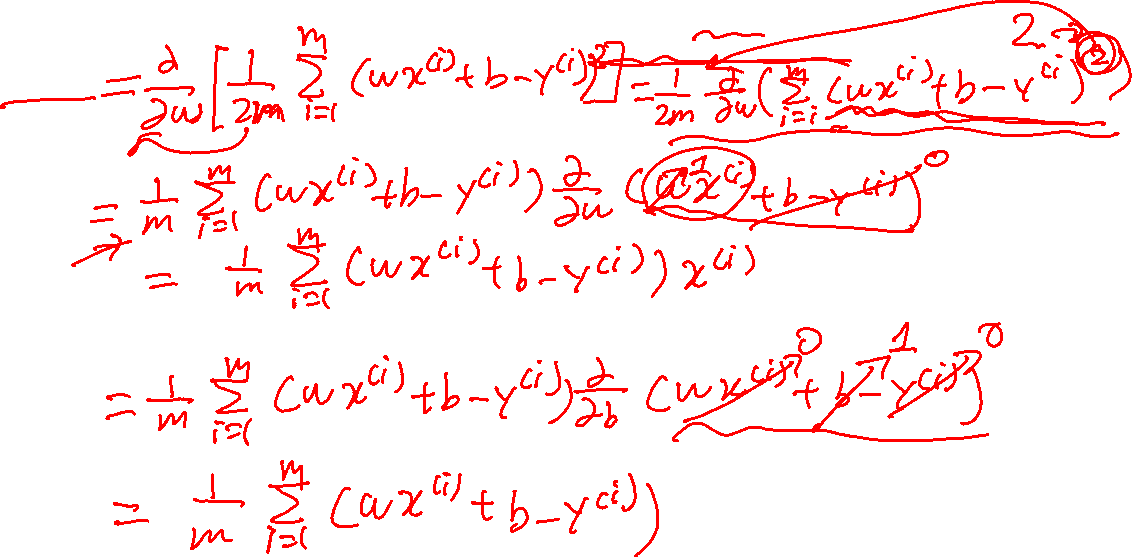 = ∂/∂w [ 1/2m Σ_{i=1}^{m} (wx^{(i)} + b - y^{(i)})^2 ] = 1/2m ∂/∂w ( Σ_{i=i}^{m} (wx^{(i)} + b - y^{(i)})^2 )
= 1/m Σ_{i=1}^{m} (wx^{(i)} + b - y^{(i)}) ∂/∂w (w^1 x^{(i)} + b - y^{(i)})^0
= 1/m Σ_{i=1}^{m} (wx^{(i)} + b - y^{(i)}) x^{(i)}
= 1/m Σ_{i=1}^{m} (wx^{(i)} + b - y^{(i)}) ∂/∂b (wx^{(i)}^0 + b^1 - y^{(i)}^0)
= 1/m Σ_{i=1}^{m} (wx^{(i)} + b - y^{(i)})